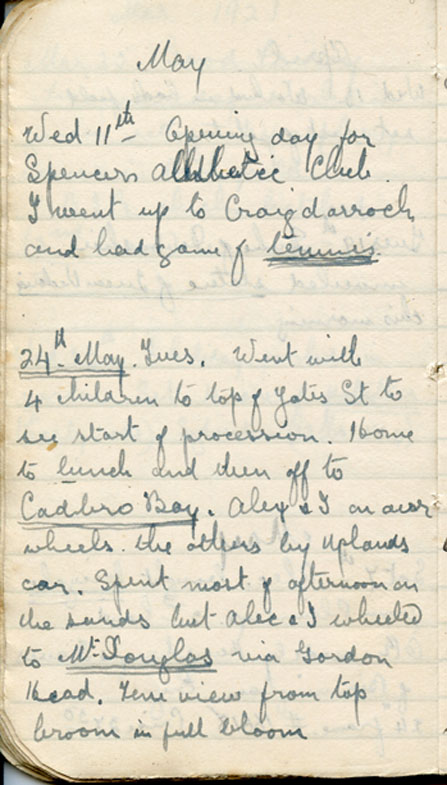 May
Wed 11th Opening day for
Spencers athletic Club.
I went up to Craigdarroch
and had game of tennis.
24th May. Tues. Went with
4 children to top of Yates St to
see start of procession. Home
to lunch and then off to
Cadboro Bay. Alec & I on our
wheels. the others by Uplands
car. Spent most of afternoon on
the sands but Alec & I wheeled
to Mt Douglas via Gordon
Head. view from top
broom in full bloom